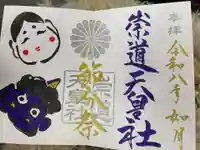 奉拝
令和八年如月
崇道天皇社
節分祭
崇道天皇社